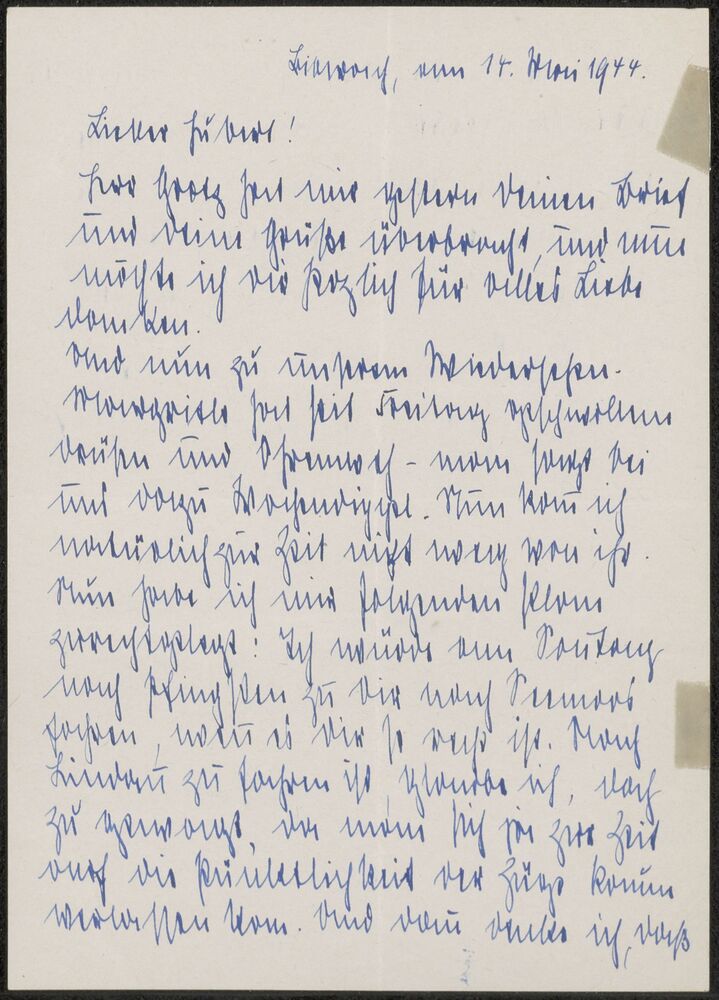 Biberach, am 14. Mai 1944.
Lieber Hubert!
Herr Grotz hat mir gestern Deinen Brief
und Deine Grüße überbracht, und nun
möchte ich Dir herzlich für alles Liebe
danken.
Und nun zu unserem Wiedersehen.
Margritle hat seit Freitag geschwollene
Drüsen und Ohrenweh – man sagt bei
uns dazu
Nun kann ich
natürlich zur Zeit nicht weg von ihr.
Nun habe ich mir folgenden Plan
zurechtgelegt: Ich würde am Sonntag
nach Pfingsten zu Dir nach Seemoos
fahren, wenn es Dir so recht ist. Nach
Lindau zu fahren ist, glaube ich, doch
zu gewagt, da man sich ja zur Zeit
auf die Pünktlichkeit der Züge kaum
verlassen kann. Und dann denke ich, daß